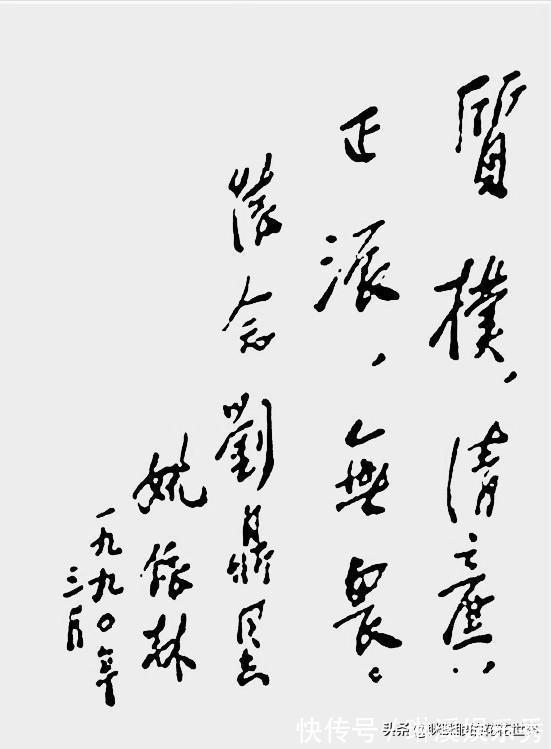 質樸，清廉，
正派，無畏。
懷念劉鼎同志
姚依林
一九九〇年
三月
快传号
头条